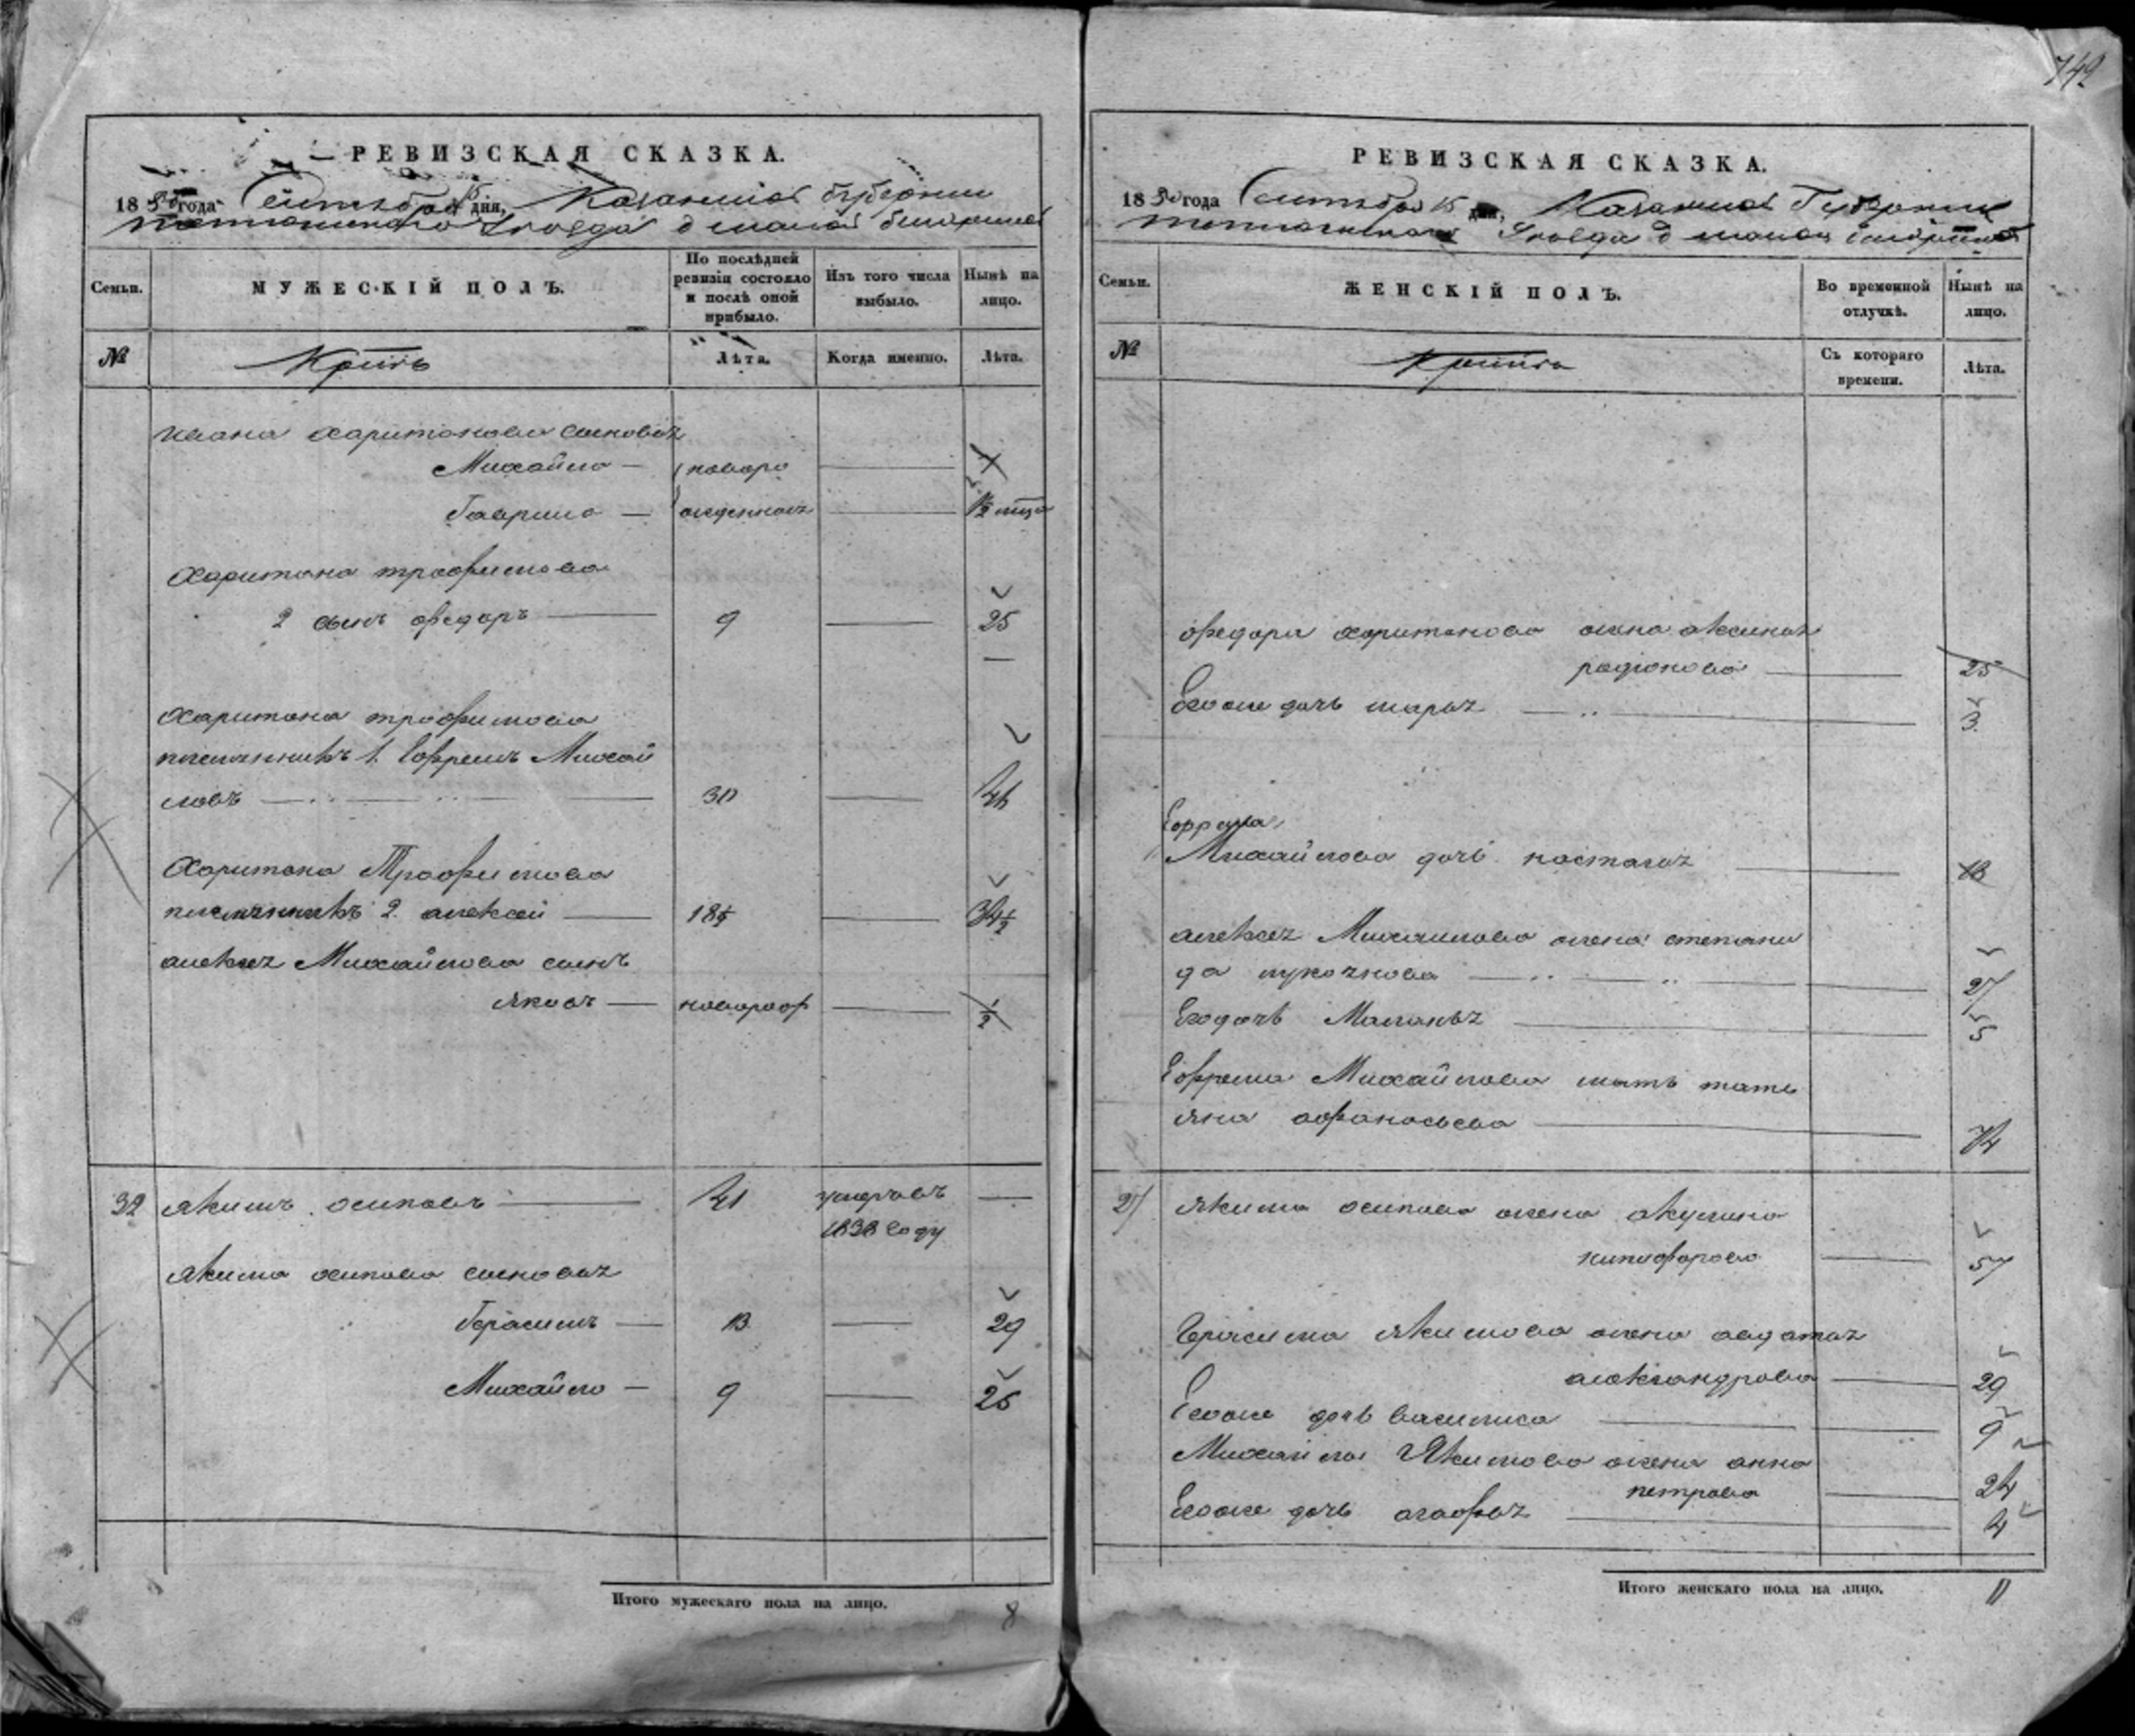 749
РЕВИЗСКАЯ СКАЗКА.
1850 года Сентября 15 дня, Казанской губернии
уезда д малой
Семьи.
МУЖЕСКІЙ ПОЛЪ.
По послѣдней ревизіи состояло и послѣ оной прибыло.
Изъ того числа выбыло.
Нынѣ на лицо.
№
Лѣта.
Когда именно.
Лѣта.
ивана харитонова сыновья
Михайло — новоро — 1
Гаврило — жденныя — 1/2
Харитона трофимова
2 сынъ федоръ — 9 — 25
Харитона трофимова
племянникъ 1. Ефремъ Михай
ловъ — 30 — 46
Харитона Трофимова
племянникъ 2. алексей — 18½ — 34½
алексея Михайлова сынъ
яковъ — новорож — 1/2
32 якимъ осиповъ — 41 умеръ въ —
1838 году
якима осипова сыновья
Герасимъ — 13 — 29
Михайло — 9 — 25
Итого мужескаго пола на лицо. 8
РЕВИЗСКАЯ СКАЗКА.
1850 года Сентября 15 дня, Казанской Губернии
уезда д малой
Семьи.
ЖЕНСКІЙ ПОЛЪ.
Во временной отлучкѣ.
Нынѣ на лицо.
№
Съ котораго времени.
Лѣта.
федора харитонова жена аксинья
радионова — 25
Егоже дочь марья — 3
Ефрема
Михайлова дочь настасья — 18
алексея Михайлова жена степани
да — 27
Егодочь Маланья — 5
Ефрема Михайлова мать тать
яна афанасьева — 74
27 якима осипова жена акулина
никифорова — 57
Герасима якимова жена авдотья
александрова — 29
Егоже дочь василиса — 9
Михайла Якимова жена анна
петрова — 24
Егоже дочь агафья — 4
Итого женскаго пола на лицо. 11